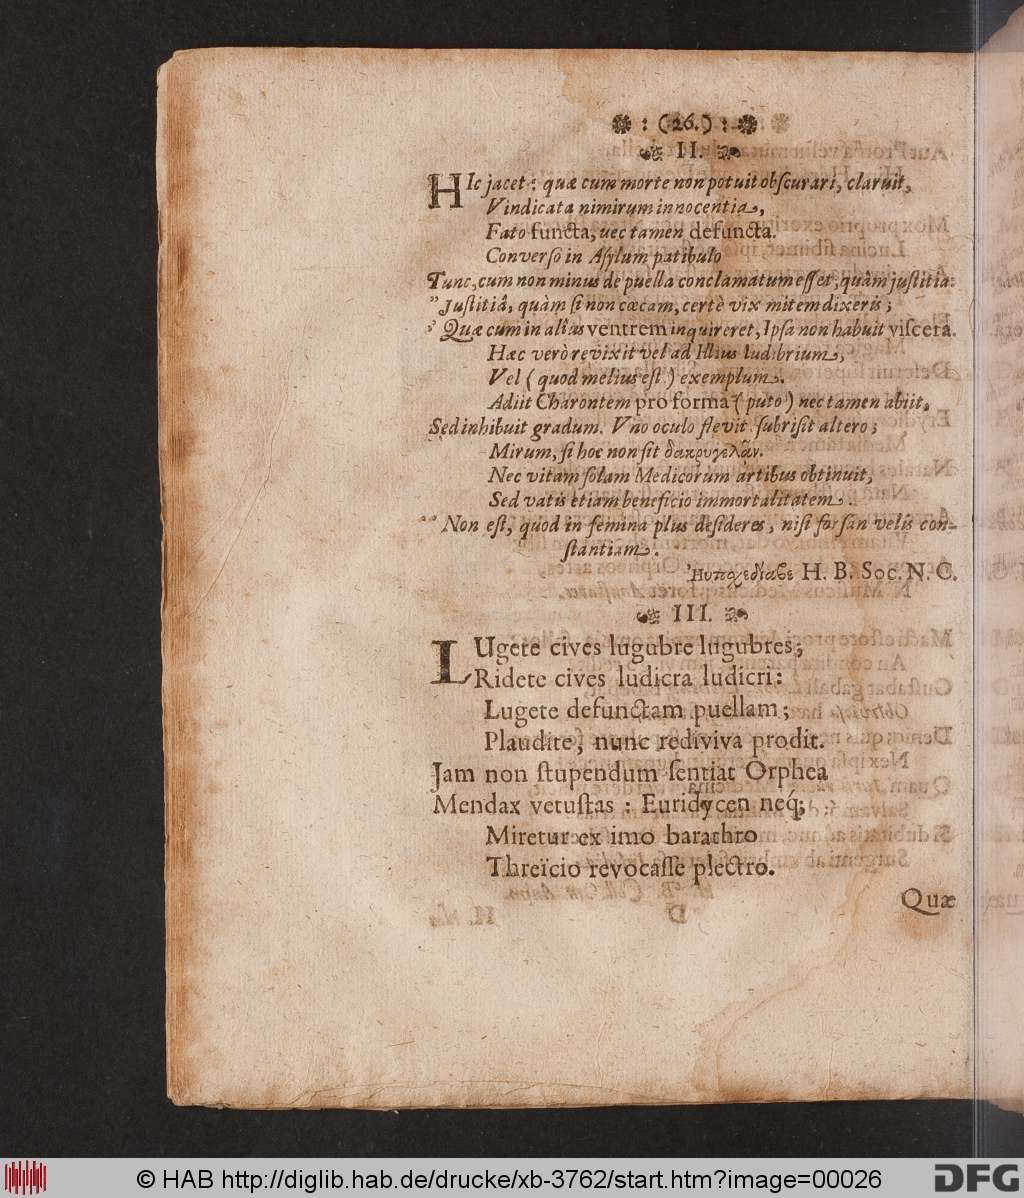 : (26.) :
II.
HIc jacet: quæ cum morte non potuit obſcurari, claruit,
Vindicata nimirum innocentia,
Fato functa, nec tamen defuncta.
Converſo in Aſylum patibulo
Tunc, cum non minus de puella conclamatum eſſet, quàm juſtitia:
„ Juſtitiâ, quàm ſi non cæcam, certè vix mitem dixeris;
„ Quæ cum in alias ventrem inquireret, Ipſa non habuit viſcera.
Hæc verò revixit vel ad Illius ludibrium,
Vel (quod melius eſt) exemplum.
Adiit Charontem pro forma (puto) nec tamen abiit,
Sed inhibuit gradum. Uno oculo flevit, ſubriſit altero;
Mirum, ſi hoc non ſit δακρυγελᾶν.
Nec vitam ſolam Medicorum artibus obtinuit,
Sed vatis etiam beneficio immortalitatem.
„ Non eſt, quod in femina plus deſideres, niſi forſan velis con-
ſtantiam.
H. B. Soc. N. C.
III.
LUgete cives lugubre lugubres;
Ridete cives ludicra ludicri:
Lugete defunctam puellam;
Plaudite, nunc rediviva prodit.
Jam non ſtupendum ſentiat Orphea
Mendax vetuſtas: Euridycen neq́;
Miretur ex imo barathro
Threïcio revocaſſe plectro.
Quæ
© HAB http://diglib.hab.de/drucke/xb-3762/start.htm?image=00026
DFG